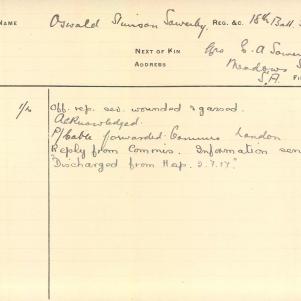 NAME Oswald Stimson Sowerby. REG. &C. 18th Batt.
NEXT OF KIN Mrs E. A Sower
ADDRESS Meadows S
S.A. FI
1/10 Off. rep. sev. wounded & gassed.
Acknowledged.
P/Cable forwarded Commis London
Reply from Commis. Information sen
"Discharged from Hsp. 2.7.17."